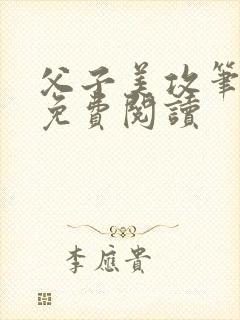 父子美攻筆
免費閱讀
李應貴